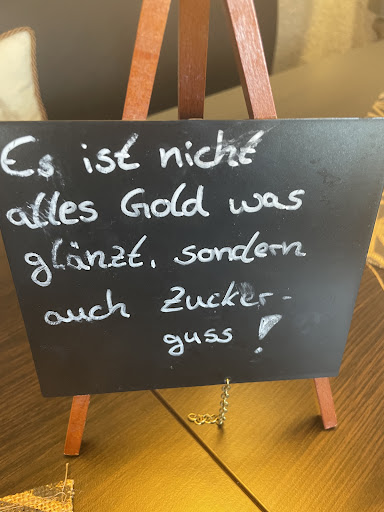 Es ist nicht
alles Gold was
glänzt, sondern
auch Zucker-
guss!